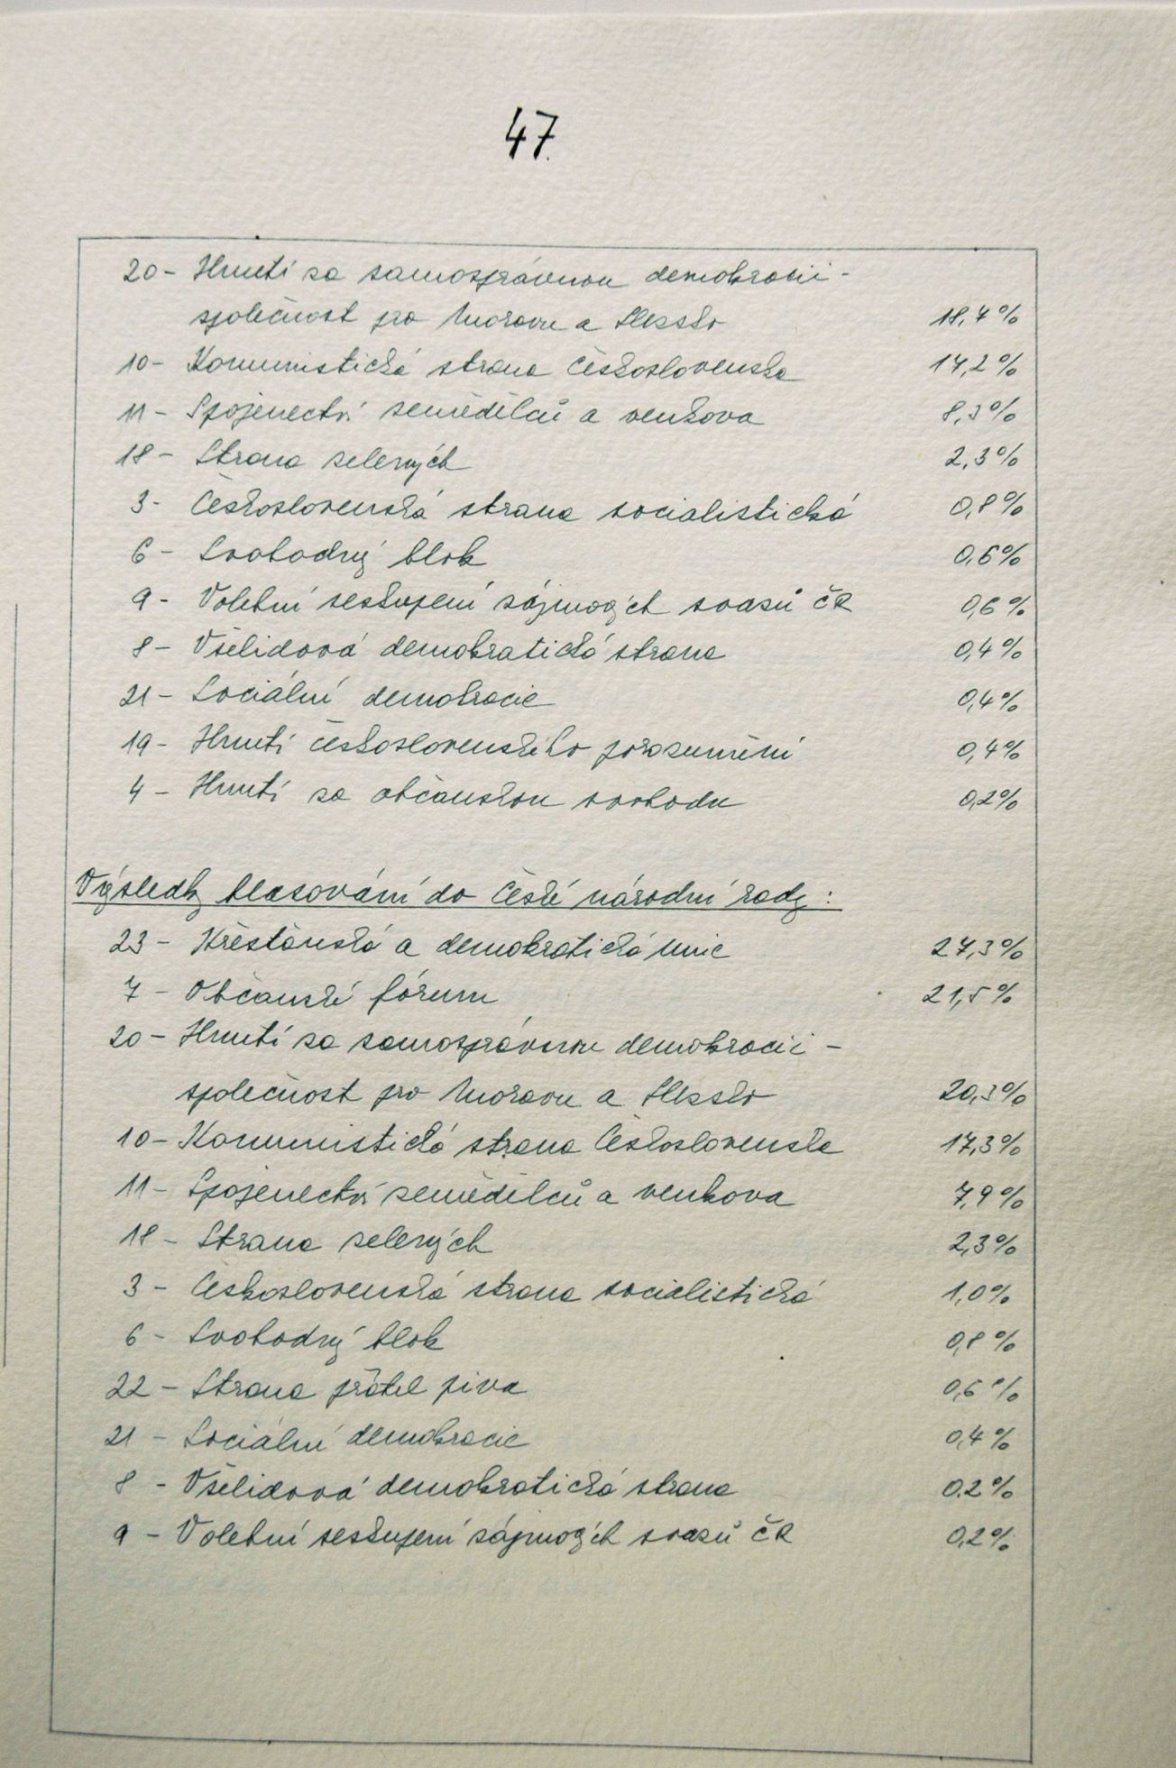 47.
20 - Hnutí za samosprávnou demokracii -
společnost pro Moravu a Slezsko 18,4%
10 - Komunistická strana Československa 14,2%
11 - Spojenectví zemědělců a venkova 8,3%
18 - Strana zelených 2,3%
3 - Československá strana socialistická 0,8%
6 - Svobodný blok 0,6%
9 - Volební seskupení zájmových svazů ČR 0,6%
8 - Všelidová demokratická strana 0,4%
21 - Sociální demokracie 0,4%
19 - Hnutí československého porozumění 0,4%
4 - Hnutí za občanskou svobodu 0,2%
Výsledky hlasování do České národní rady:
23 - Křesťanská a demokratická unie 27,3%
7 - Občanské fórum 21,5%
20 - Hnutí za samosprávnou demokracii -
společnost pro Moravu a Slezsko 20,3%
10 - Komunistická strana Československa 17,3%
11 - Spojenectví zemědělců a venkova 7,9%
18 - Strana zelených 2,3%
3 - Československá strana socialistická 1,0%
6 - Svobodný blok 0,8%
22 - Strana přátel piva 0,6%
21 - Sociální demokracie 0,4%
8 - Všelidová demokratická strana 0,2%
9 - Volební seskupení zájmových svazů ČR 0,2%